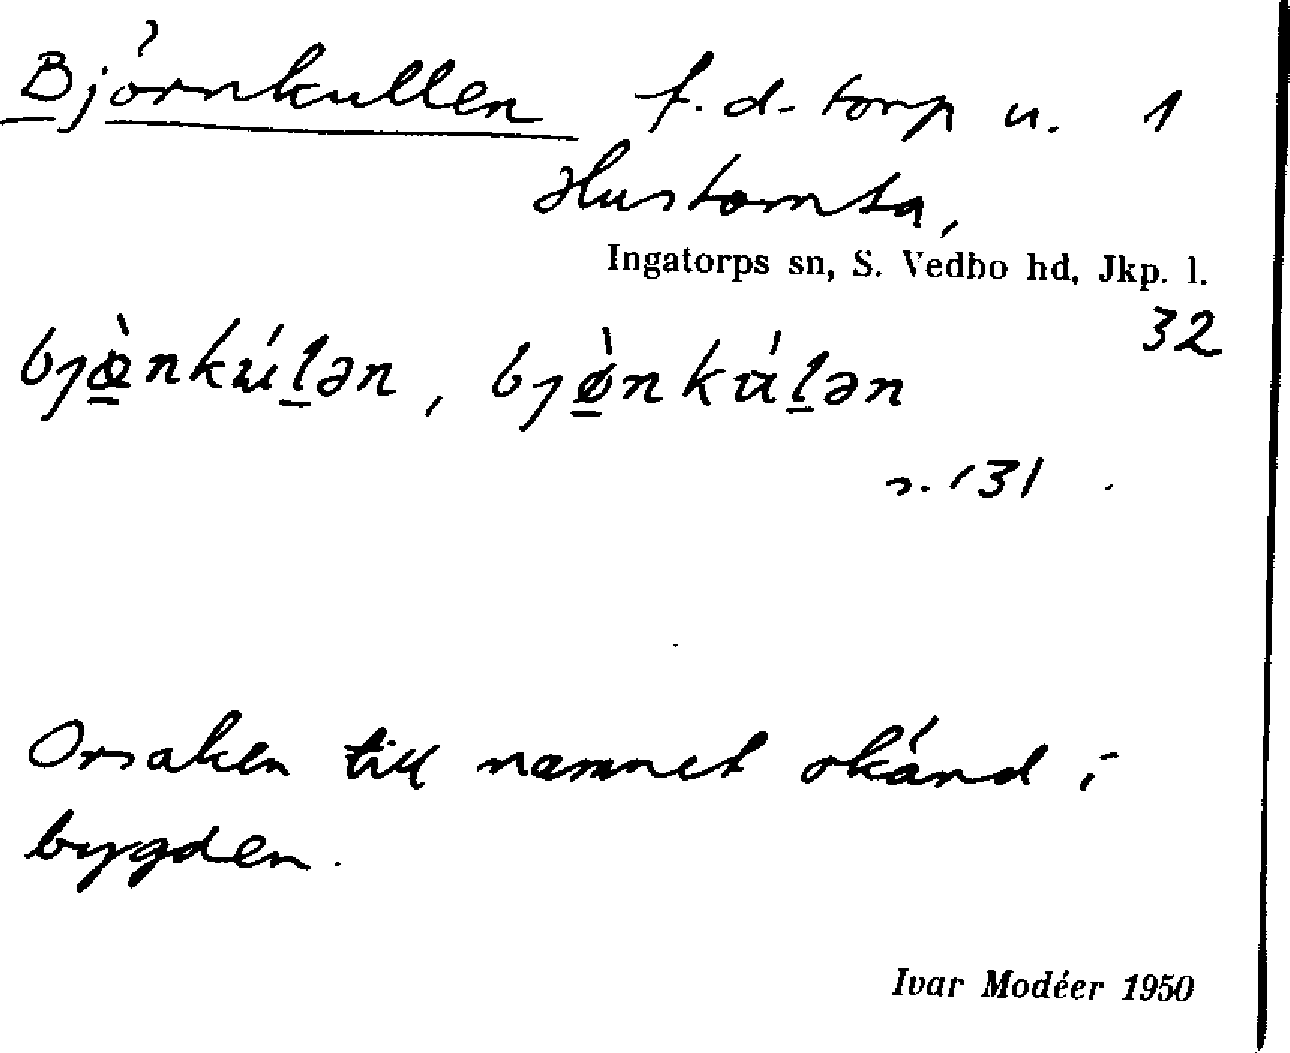 Björnkullen f.d. torp u. 1
Hustomta,
Ingatorps sn, S. Vedbo hd, Jkp. l.
32
bjœ̱̀nkúḻən, bjø̱̀nkáḻən
s. 131
Orsaken till namnet okänd i
bygden.
Ivar Modéer 1950